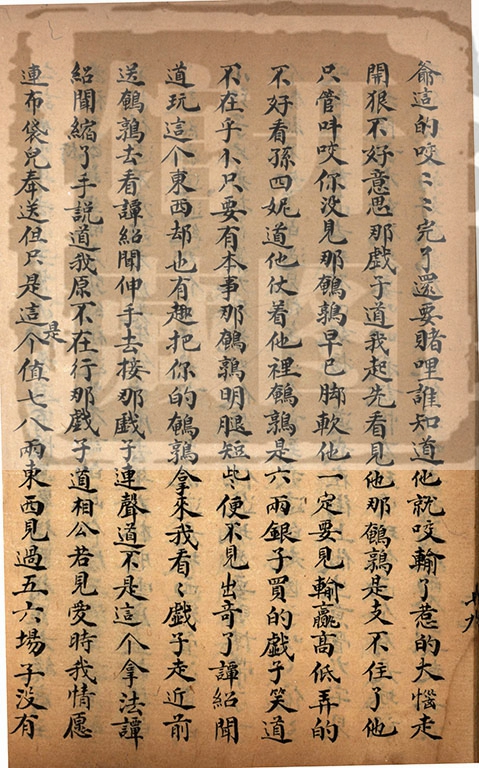 爺這的咬〻〻完了還要賭哩誰知道他就咬輸了惹的大惱走
開狠不好意思那戲子道我起先看見他那鵪鶉是支不住了他
只管呌咬你没見那鵪鶉早已脚軟他一定要見輸贏高低弄的
不好看孫四妮道他仗着他裡鵪鶉是六兩銀子買的戲子笑道
不在乎尒只要有本事那鵪鶉明腿短些便不見出竒了譚紹聞
道玩這个東西却也有趣把你的鵪鶉拿來我看〻戲子走近前
送鵪鶉去看譚紹聞伸手去接那戲子連聲道不是這个拿法譚
紹聞縮了手説道我原不在行那戲子道相公若見愛時我情愿
連布袋兒奉送但只是這是个值七八兩東西見過五六場子没有
十九